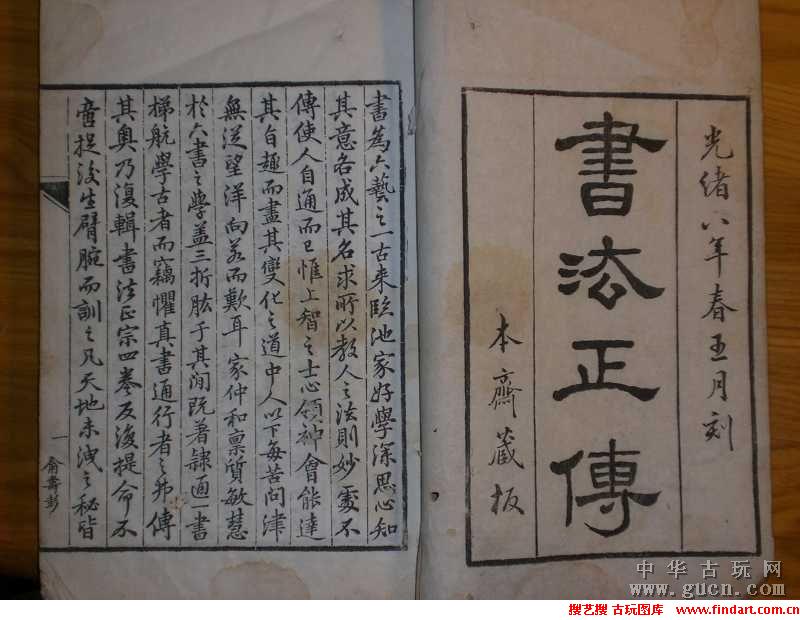 光緒八年春王月刻
書法正傳
本齋藏板
書為六藝之一古來臨池家好學深思心知
其意各成其名求所以教人之法則妙處不
傳使人自通而已惟上智之士心領神會能達
其旨趣而盡其變化之道中人以下每苦問津
無從望洋向若而歎耳家仲和稟質敏慧
於六書之學蓋三折肱于其閒既著隸通一書
梯航學古者而竊懼真書通行者之弗傳
其奧乃復輯書法正宗四卷反復提命不
啻捉後生臂腕而訓之凡天地未洩之秘皆
一
俞壽彭
中华古玩网
www.gucn.com
搜艺搜 古玩图库 www.findart.com.cn